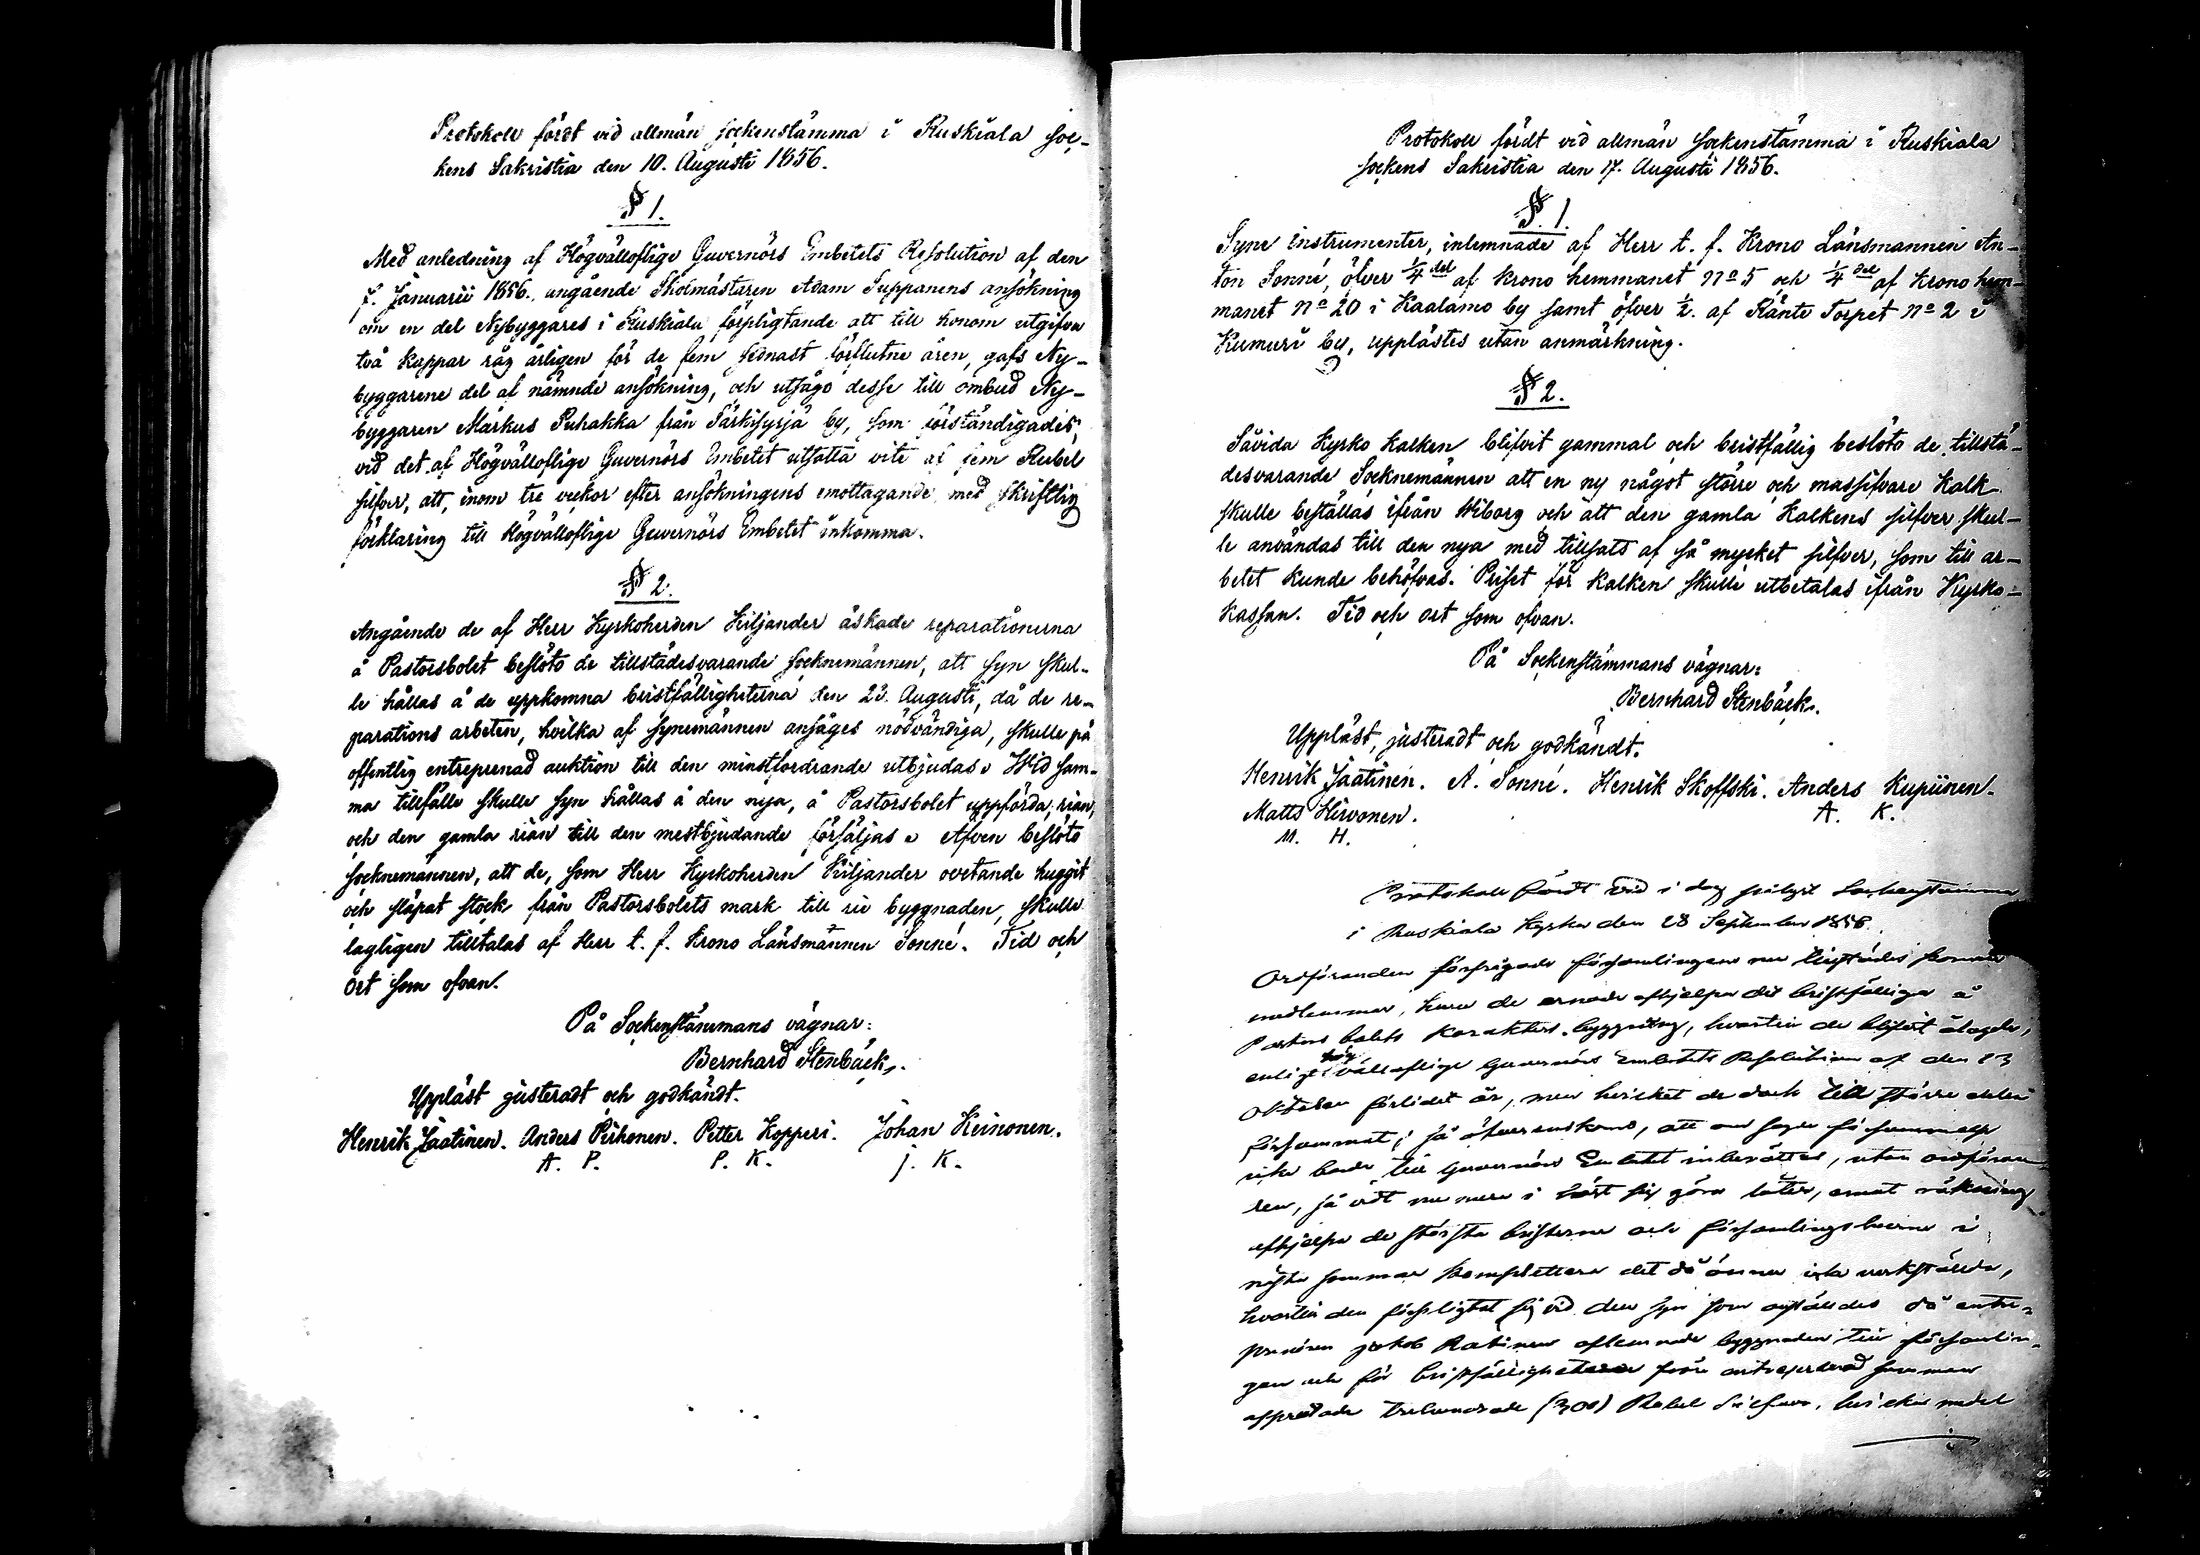 Protokoll fördt vid allmän sockenstämma i Ruskiala soc-
kens Sakristia den 10. Augusti 1856.
§ 1.
Med anledning af Högvälloflige Guvernörs Embetets Resolution af den
7. Januarii 1856. angående Skolmästaren Adam Suppanens ansökning
om en del Nybyggares i Ruskiala förpligtande att till honom utgifva
två kappar råg årligen för de fem sednast förflutne åren, gafs Ny-
byggarene del af nämnde ansökning, och utsågo desse till ombud Ny-
byggaren Markus Puhakka från Särkisyrjä by, som förständigades,
vid det af Högvälloflige Guvernörs Embetet utsatta vite af fem Rubel
silfver, att, inom tre veckor efter ansökningens emottagande med skriftlig
förklaring till Högvälloflige Guvernörs Embetet inkomma.
§ 2.
Angående de af Herr Kyrkoherden Kiljander äskade reparationerna
å Pastorsbolet beslöto de tillstädesvarande socknemännen, att syn skul-
le hållas å de uppkomna bristfälligheterna den 23. Augusti, då de re-
parations arbeten, hvilka af synemännen anságes nödvändiga, skulle på
offentlig entreprenad auktion till den minstfordrande utbjudas. Wid sam-
ma tillfälle skulle syn hållas å den nya, å Pastorsbolet uppförda, rian,
och den gamla rian till den mestbjudande försäljas. Äfven beslöto
socknemännen, att de, som Herr Kyrkoherden Kiljander ovetande huggit
och släpat stock från Pastorsbolets mark till rie byggnaden, skulle
lagligen tilltalas af Herr t. f. Krono Länsmannen Sonné. Tid och
ort som ofvan.
På Sockenstämmans vägnar:
Bernhard Stenbäck.
Uppläst justeradt och godkändt.
Henrik Jaatinen. Anders Pirhonen. Petter Kopperi. Johan Keinonen.
A. P. P. K. J. K.
Protokoll fördt vid allmän sockenstämma i Ruskiala
sockens Sakristia den 17. Augusti 1856.
§. 1.
Syne instrumenter, inlemnade af Herr t. f. Krono Länsmannen An-
ton Sonné, öfver 1/4 del af krono hemmanet No 5 och 1/4 del af krono hem-
manet No 20 i Kaalamo by samt öfver 1/2. af Ränte Torpet No 2 i
Kumuri by, upplästes utan anmärkning.
§ 2.
Såvida Kyrko kalken blifvit gammal och bristfällig beslöto de tillstä-
desvarande Socknemännen att en ny något större och massifvare kalk
skulle beställas ifrån Wiborg och att den gamla kalkens silfver skul-
le användas till den nya med tillsats af så mycket silfver, som till ar-
betet kunde behöfvas. Priset för kalken skulle utbetalas ifrån Kyrko-
kassan. Tid och ort som ofvan.
På Sockenstämmans vägnar:
Bernhard Stenbäck.
Uppläst, justeradt och godkändt.
Henrik Jaatinen. A. Sonné. Henrik Skoffski. Anders Kupiinen.
Matts Hirvonen. A. K.
M. H.
Protokoll fördt vid i dag hållit Sockenstämma
i Ruskiala Kyrka den 28 September 1856.
Ordföranden förfrågade församlingens nu tillstädes komne
medlemmar, huru de ernade afhjelpa det bristfälliga å
Pastors bolets karakters byggning, hvartill de blifvit ålagde,
enligt hög välloflige Guvernörs Embetets Resolution af den 23
Oktober förlidet år, men hvilket de dock till större delen
försummat; så öfverenskoms, att om sagde försummelse
icke borde till Guvernörs Embetet inberättas, utan ordföran
den, så vidt nu mera i höst sig göra låter, emot räkning
afhjelpa de största bristerna och församlingsboerne i
nästa sommar komplettera det då ännu icke verkstälda,
hvartill den förpligtat sig vid den syn som anstäldes då entre-
prenören Jakob Ratinen aflemnade byggnaden till församlin-
gen och för bristfälligheterna från entreprenad summan
afprutade trehundrade (300) Rubel Silfver, hvilka medel